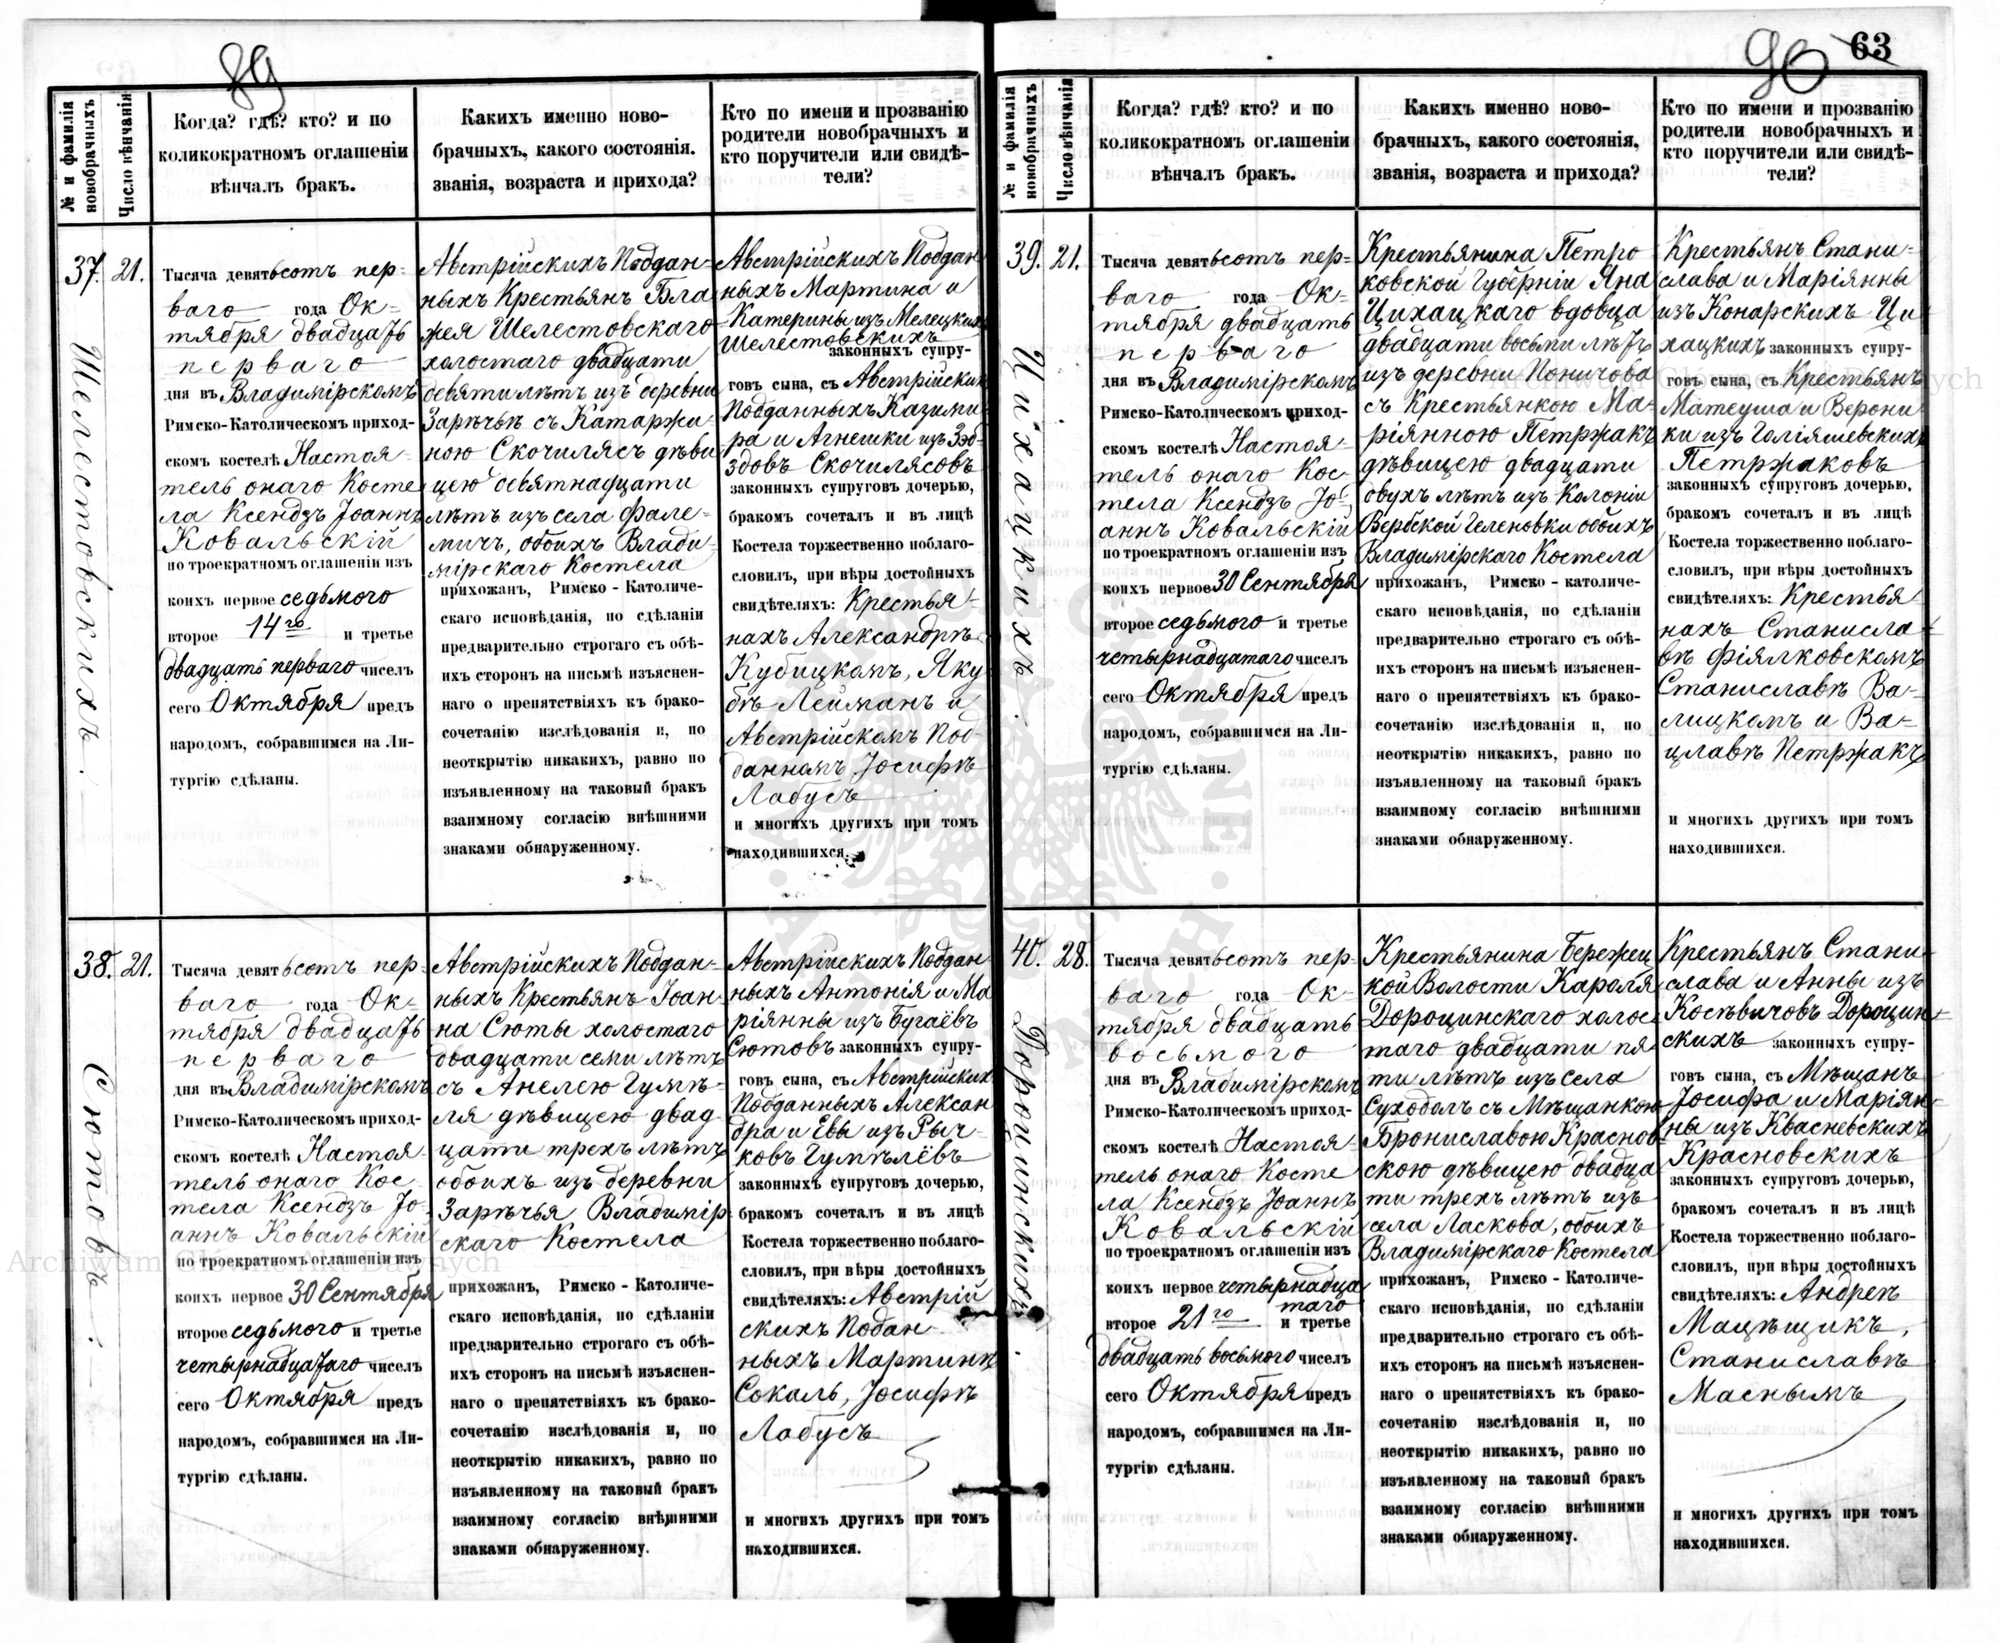 89
№ и фамилія новобрачныхъ
Число вѣнчанія
Когда? гдѣ? кто? и по
коликократномъ оглашеніи
вѣнчалъ бракъ.
Какихъ именно ново-
брачныхъ, какого состоянія.
званія, возраста и прихода?
Кто по имени и прозванію
родители новобрачныхъ и
кто поручители или свидѣ-
тели?
37. 21.
Шелестовскихъ.
Тысяча девятьсотъ пер-
ваго года Ок-
тября двадцать
перваго
дня въ Владимірскомъ
Римско-Католическомъ приход-
скомъ костелѣ Настоя-
тель онаго Косте
ла Ксендзъ Іоаннъ
Ковальскій
по троекратномъ оглашеніи изъ
коихъ первое седьмого
второе 14го и третье
двадцать перваго чиселъ
сего Октября предъ
народомъ, собравшимся на Ли-
тургію сдѣланы.
Австрійскихъ Поддан-
ныхъ Крестьянъ Бла
жея Шелестовскаго
холостаго двадцати
девяти лѣтъ изъ деревни
Зарѣчье съ Катаржи-
ною Скочилясъ дѣви
цею девятнадцати
лѣтъ изъ села Фале-
мичъ, обоихъ Влади-
мірскаго Костела
прихожанъ, Римско - Католиче-
скаго исповѣданія, по сдѣланіи
предварительно строгаго съ обѣ-
ихъ сторонъ на письмѣ изъяснен-
наго о препятствіяхъ къ брако-
сочетанію изслѣдованія и, по
неоткрытію никакихъ, равно по
изъявленному на таковый бракъ
взаимному согласію внѣшними
знаками обнаруженному.
Австрійскихъ Поддан
ныхъ Мартина и
Катерины изъ Мелецкихъ
Шелестовскихъ
законныхъ супру-
говъ сына, съ Австрійскихъ
Подданныхъ Казими-
ра и Агнешки изъ
Скочилясовъ
законныхъ супруговъ дочерью,
бракомъ сочеталъ и въ лицѣ
Костела торжественно поблаго-
словилъ, при вѣры достойныхъ
свидѣтеляхъ: Крестья-
нахъ Александрѣ
Кубицкомъ, Яку-
бѣ Лейманъ и
Австрійскомъ Под-
данномъ Іосифѣ
Лабусь
и многихъ другихъ при томъ
находившихся.
38. 21.
Сютовъ.
Тысяча девятьсотъ пер-
ваго года Ок-
тября двадцать
перваго
дня въ Владимірскомъ
Римско-Католическомъ приход-
скомъ костелѣ Настоя-
тель онаго Кос-
тела Ксендзъ Іо-
аннъ Ковальскій
по троекратномъ оглашеніи изъ
коихъ первое 30 Сентября
второе седьмого и третье
четырнадцатаго чиселъ
сего Октября предъ
народомъ, собравшимся на Ли-
тургію сдѣланы.
Австрійскихъ Поддан-
ныхъ Крестьянъ Іоан-
на Сюты холостаго
двадцати семи лѣтъ
съ Анелею Гумѣ-
ля дѣвицею двад-
цати трехъ лѣтъ
обоихъ изъ деревни
Зарѣчья Владимір
скаго Костела
прихожанъ, Римско - Католиче-
скаго исповѣданія, по сдѣланіи
предварительно строгаго съ обѣ-
ихъ сторонъ на письмѣ изъяснен-
наго о препятствіяхъ къ брако-
сочетанію изслѣдованія и, по
неоткрытію никакихъ, равно по
изъявленному на таковый бракъ
взаимному согласію внѣшними
знаками обнаруженному.
Австрійскихъ Поддан
ныхъ Антонія и Ма
ріянны изъ Бугаёвъ
Сютовъ законныхъ супру-
говъ сына, съ Австрійскихъ
Подданныхъ Алексан
дра и Евы изъ Рыч-
ковъ Гумѣлёвъ
законныхъ супруговъ дочерью,
бракомъ сочеталъ и въ лицѣ
Костела торжественно поблаго-
словилъ, при вѣры достойныхъ
свидѣтеляхъ: Австрій
скихъ Подан-
ныхъ Мартинѣ
Сокаль, Іосифѣ
Лабусь
и многихъ другихъ при томъ
находившихся.
90 63
№ и фамилія новобрачныхъ
Число вѣнчанія
Когда? гдѣ? кто? и по
коликократномъ оглашеніи
вѣнчалъ бракъ.
Какихъ именно ново-
брачныхъ, какого состоянія,
званія, возраста и прихода?
Кто по имени и прозванію
родители новобрачныхъ и
кто поручители или свидѣ-
тели?
39. 21.
Цихацкихъ.
Тысяча девятьсотъ пер-
ваго года Ок-
тября двадцать
перваго
дня въ Владимірскомъ
Римско-Католическомъ приход-
скомъ костелѣ Настоя-
тель онаго Кос-
тела Ксендзъ Іо-
аннъ Ковальскій
по троекратномъ оглашеніи изъ
коихъ первое 30 Сентября
второе седьмого и третье
четырнадцатаго чиселъ
сего Октября предъ
народомъ, собравшимся на Ли-
тургію сдѣланы.
Крестьянина Петро
ковской Губерніи Яна
Цихацкаго вдовца
двадцати восьми лѣтъ
изъ деревни Поничова
съ Крестьянкою Ма-
ріянною Петржакъ
дѣвицею двадцати
двухъ лѣтъ изъ Колоніи
Вербской Геленовки обоихъ
Владимірскаго Костела
прихожанъ, Римско - католиче-
скаго исповѣданія, по сдѣланіи
предварительно строгаго съ обѣ-
ихъ сторонъ на письмѣ изъяснен-
наго о препятствіяхъ къ брако-
сочетанію изслѣдованія и, по
неоткрытію никакихъ, равно по
изъявленному на таковый бракъ
взаимному согласію внѣшними
знаками обнаруженному.
Крестьянъ Стани-
слава и Маріянны
изъ Конарскихъ Ци-
хацкихъ законныхъ супру-
говъ сына, съ Крестьянъ
Матеуша и Верони-
ки изъ Голіяшевскихъ
Петржаковъ
законныхъ супруговъ дочерью,
бракомъ сочеталъ и въ лицѣ
Костела торжественно поблаго-
словилъ, при вѣры достойныхъ
свидѣтеляхъ: Крестья-
нахъ Станисла-
вѣ Фіялковскомъ
Станиславѣ Ва-
лицкомъ и Ва-
цлавѣ Петржакъ
и многихъ другихъ при томъ
находившихся.
40. 28.
Дороцинскихъ.
Тысяча девятьсотъ пер-
ваго года Ок-
тября двадцать
восьмого
дня въ Владимірскомъ
Римско-Католическомъ приход-
скомъ костелѣ Настоя-
тель онаго Косте
ла Ксендзъ Іоаннъ
Ковальскій
по троекратномъ оглашеніи изъ
коихъ первое четырнадца
таго
второе 21го и третье
двадцать восьмого чиселъ
сего Октября предъ
народомъ, собравшимся на Ли-
тургію сдѣланы.
Крестьянина Бережец
кой Волости Кароля
Дороцинскаго холос-
таго двадцати пя-
ти лѣтъ изъ села
Суходолъ съ Мѣщанкою
Брониславою Краснов-
скою дѣвицею двадца
ти трехъ лѣтъ изъ
села Ласкова, обоихъ
Владимірскаго Костела
прихожанъ, Римско - Католиче-
скаго исповѣданія, по сдѣланіи
предварительно строгаго съ обѣ-
ихъ сторонъ на письмѣ изъяснен-
наго о препятствіяхъ къ брако-
сочетанію изслѣдованія и, по
неоткрытію никакихъ, равно по
изъявленному на таковый бракъ
взаимному согласію внѣшними
знаками обнаруженному.
Крестьянъ Стани-
слава и Анны изъ
Косѣвичовъ Дороцин-
скихъ законныхъ супру-
говъ сына, съ Мѣщанъ
Іосифа и Маріян-
ны изъ Квасневскихъ
Красновскихъ
законныхъ супруговъ дочерью,
бракомъ сочеталъ и въ лицѣ
Костела торжественно поблаго-
словилъ, при вѣры достойныхъ
свидѣтеляхъ: Андреѣ
Мацѣщикъ,
Станиславѣ
Маснымъ
и многихъ другихъ при томъ
находившихся.
Archiwum Główne Akt Dawnych